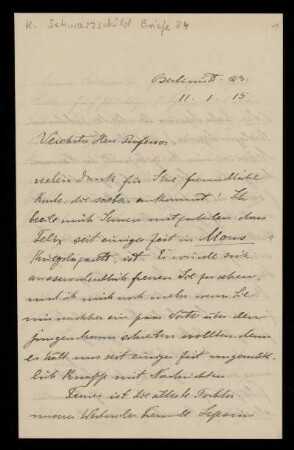 K. Schwarzschild Briefe 84
1
Berlin
11. 1. 15
Verehrter Herr Professor
vielen Dank für Ihre freundliche
Karte, die soeben ankommt! Ich
beeile mich Ihnen mitzuteilen dass
Felix seit einiger Zeit in Mons
Kriegslazarett, ist. Er würde sich
ausserordentlich freuen Sie zu sehen,
und ich mich noch mehr wenn Sie
mir nachher ein paar Worte über den
jungen schreiben wollten, denn
er hält uns seit einiger Zeit ungemüt-
lich knapp mit Nachrichten
Ferner ist die älteste Tochter
unserer Freunde